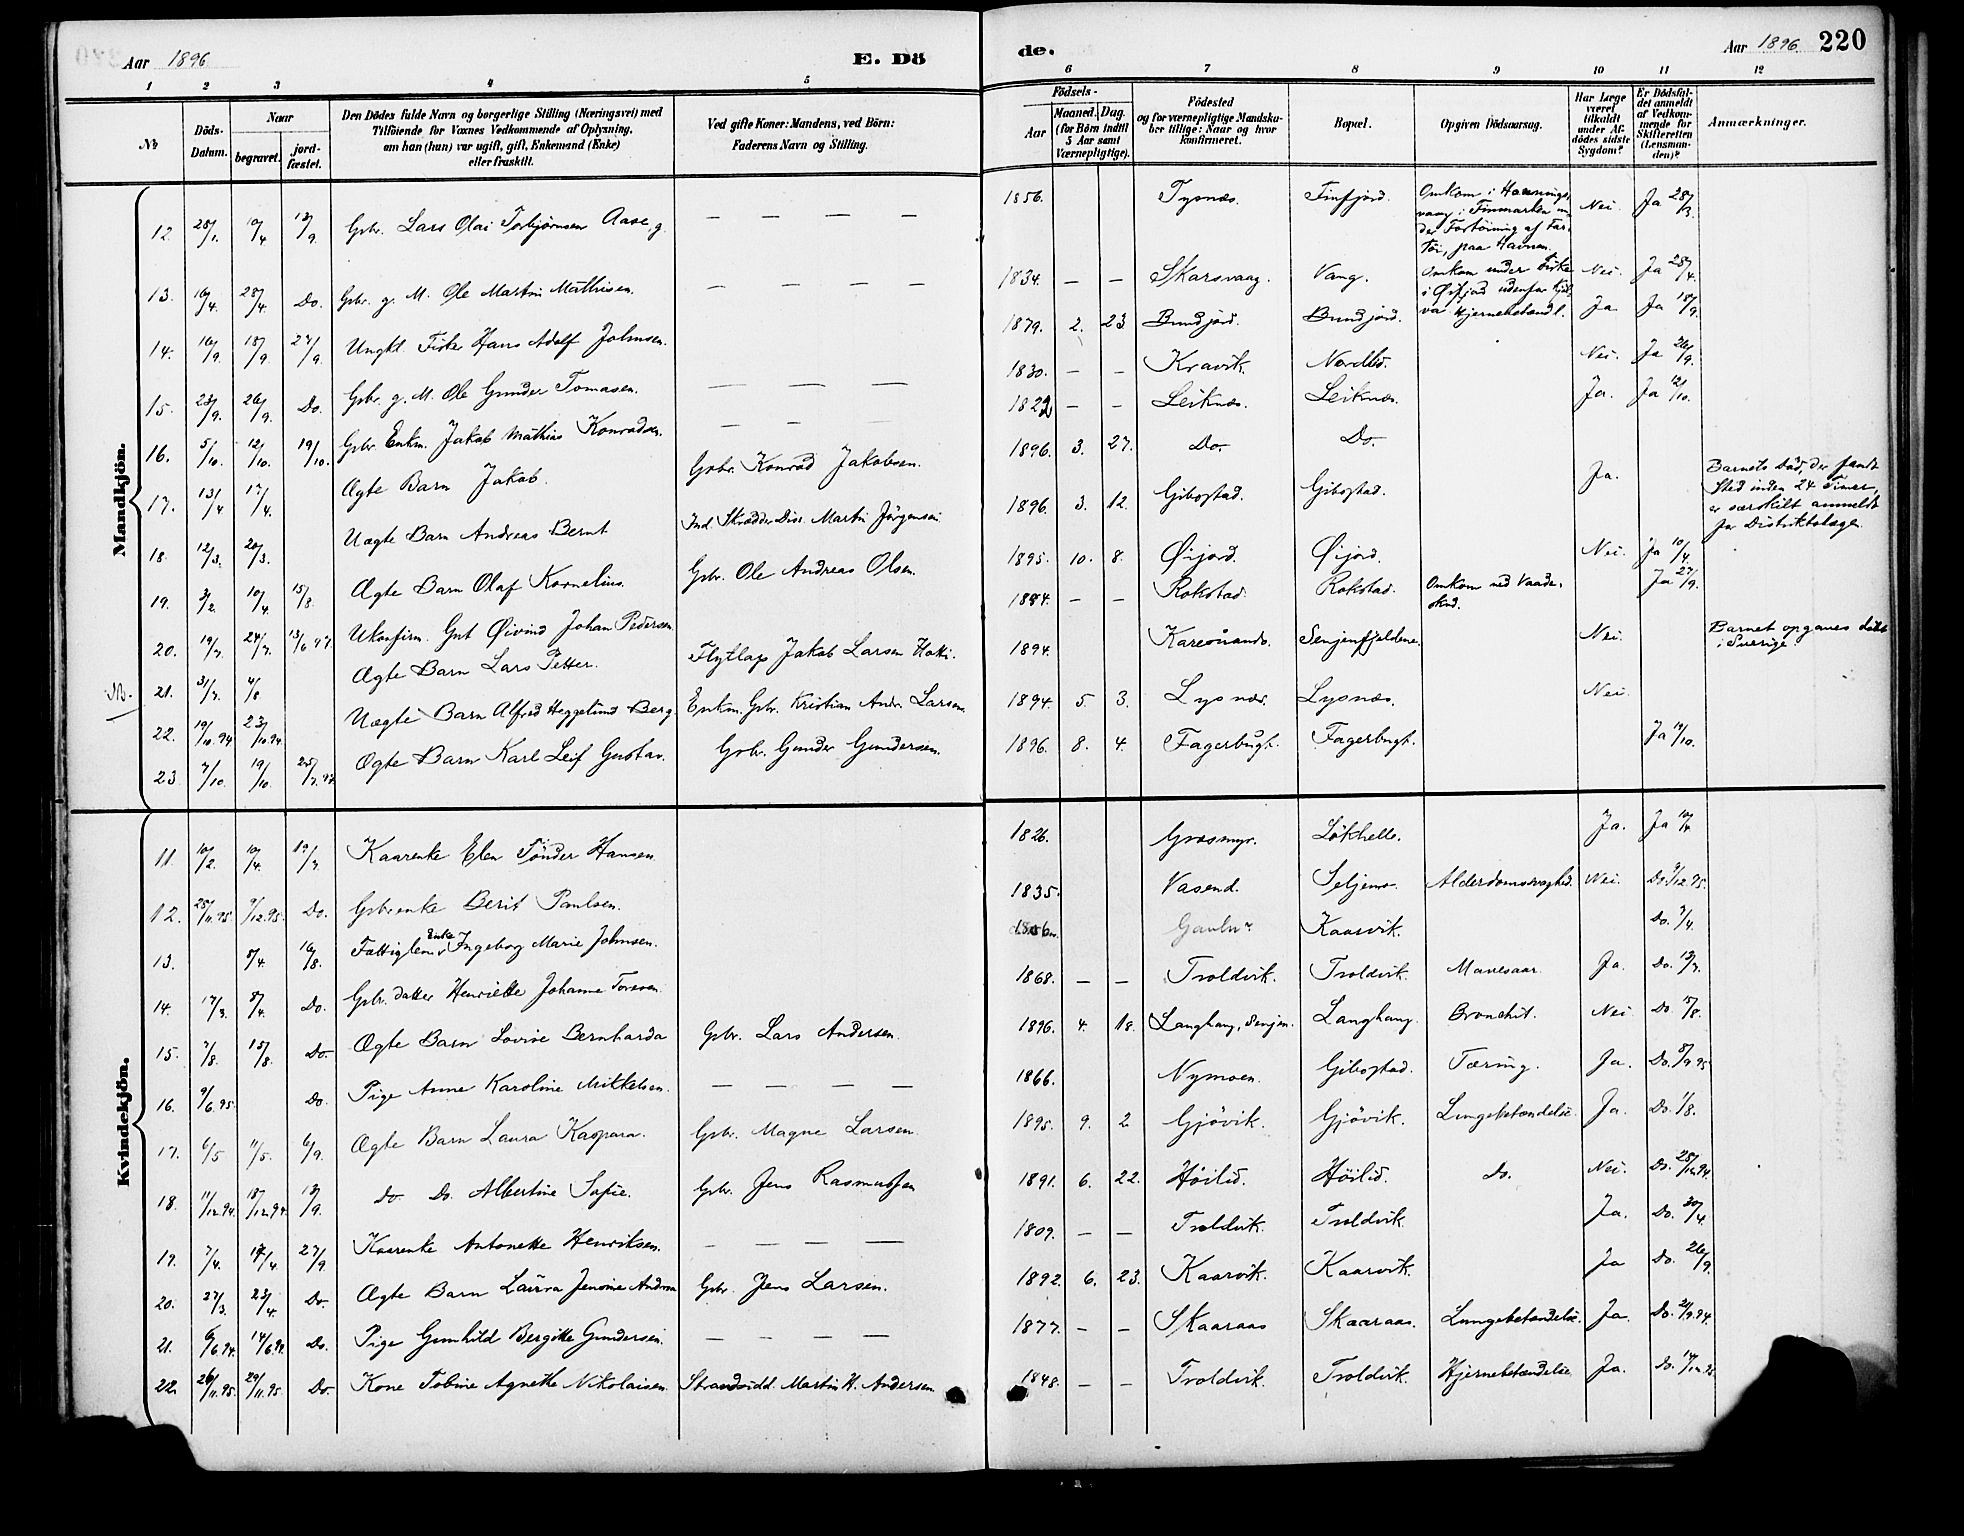 Aar 1896
E. Dö
de.
Aar 1896. 220
1 2 3 4 5 6 7 8 9 10 11 12
No
Döds-Datum.
Naar
begravet.
jord-fæstet.
Den Dödes fulde Navn og borgerlige Stilling (Næringsvei) med
Tilföiende for Voxnes Vedkommende af Oplysning,
om han (hun) var ugift, gift, Enkemand (Enke)
eller fraskilt.
Ved gifte Koner: Mandens, ved Börn:
Faderens Navn og Stilling.
Födsels-
Aar
Maaned. Dag.
(for Börn indtil
5 Aar samt
Værnepligtige).
Födested
og for værnepligtige Mandsku-
ber tillige: Naar og hvor
konfirmeret.
Bopæl.
Opgiven Dödsaarsag.
Har Læge
været
tilkaldt
under Af-
dödes sidste
Sygdom?
Er Dödsfal-
det anmeldt
af Vedkom-
mende for
Skifteretten
(Lensman-
den)?
Anmærkninger.
Mandkjön.
12. 28/1. 10/4 13/9. Gbr. Lars Olai Torbjørnsen Aase, g. — — — — 1856. Tysnæs. Finfjord. Omkom i Honnings-
vaag i Finmarken un-
der Fortöining af Far-
töi, paa Havnen. Nei. Ja 28/3.
13. 16/4. 28/4 Do. Gbr. g. M. Ole Martin Mathisen. — — — — 1834. — — Skarsvaag. Vang. Omkom under Fiske
i Øifjord udenfor Nei. Ja 28/4.
14. 16/9. 18/9. 27/9. Ungkl. Fisker Hans Adolf Johnsen. 1879. 2. 23 Bundjord. Bundjord. Hjernebetændl. Ja Ja 18/9.
15. 23/9. 26/9. Do. Gbr. g. M. Ole Gunder Tomasen. — — — 1830. — — Kravik. Nordlid. Nei. Ja 26/9.
16. 5/10. 12/10. 19/10. Gbr. Enkm. Jakob Mathias Konradsen. — — — 1822 — — Leiknes. Leiknes. Ja. Ja 12/10.
17. 13/4 17/4. Ægte Barn Jakob. Gbr. Konrad Jakobsen. 1896. 3. 27. Do. Do.
18. 12/3. 20/3. Uægte Barn Andreas Bernt Ind. Skrædder Martin Jörgensen 1896. 3. 12. Gibostad. Gibostad. Ja. Barnets Död, der fandt
Sted inden 24 Timer,
er særskilt anmeldt
for Distriktslæge.
19. 3/2. 10/4. 15/8. Ægte Barn Olaf Kornelius. Gbr. Ole Andreas Olsen. 1895. 10. 8. Øijord. Øijord. Nei. Ja 10/4.
20. 19/7. 24/7. 13/6 97. Ukonfirm. Gut Øivind Johan Pedersen 1884. — — Rokstad. Rokstad. Omkom ved Vaade-
skud. Ja 27/9.
NB. 21. 31/7. 4/8 Ægte Barn Lars Petter. Flytlap Jakob Larsen Hotti. 1894. Karesuando. Senjenfjeldene. Nei. Barnet opgaves döbt
i Sverige.
22. 19/10.94 23/10.94. Uægte Barn Alfred Heggelund Berg. Enkm. Gbr. Kristian Andr. Larsen 1894. 5. 3. Lysnæs. Lysnæs. Nei.
23 7/10. 19/10. 25/7.97. Ægte Barn Karl Leif Gustav. Gbr. Gunder Gundersen. 1896. 8. 4. Fagerbugt. Fagerbugt. Ja 19/10.
Kvindekjön.
11. 10/2. 10/4. 19/7. Kaarenke Elen Tönder Hansen. 1826. Græsmyr. Lökhelle. Ja. Ja 10/4.
12. 25/11.95 9/12.95. Do. Gbrenke Berit Paulsen. 1835. Vasend. Seljemo. Alderdomssvaghed. Nei. Do 9/12.95.
13. 8/4. 16/8. Fattiglem Enke Ingeborg Marie Johnsen. Kaarvik. Do. 7/4.
14. 17/3. 8/4. Do. Gbr. datter Henriette Johanne Toresen. 1868. — — Troldvik. Troldvik. Ja. Do. 13/7.
15. 7/8. 15/8. Do. Ægte Barn Lovise Bernharda Gbr. Lars Andersen. 1896. 4. 18. Langhaug, Senjen. Langhaug. Bronchit. Nei Do 15/8.
16. 9/6.95. Do. Pige Anne Karoline Mikkelsen. — — — — 1866. Nymoen. Gibostad. Tæring. Ja. Do. 8/9 95
17. 6/5 11/5. 6/9. Ægte Barn Laura Kaspara. Gbr. Magne Larsen. 1895. 9. 2 Gjövik. Gjövik. Lungebetændelse. Ja. Do. 1/8.
18. 11/12.94. 18/12.94. 13/9. Do. Do. Albertine Sofie. Gbr. Jens Rasmussen 1891. 6. 22. Höilid. Höilid. Do. Nei. Do. 28/12.94.
19. 7/4. 17/4. 27/9. Kaarenke Antonette Henriksen. — — — — 1809. — — Troldvik. Troldvik. Ja. Do. 30/4.
20. 27/3. 23/4. Do. Ægte Barn Laura Jensine Andrea Gbr. Jens Larsen. 1892. 6. 23. Kaarvik. Kaarvik. Ja Do. 26/9.
21. 6/6.94. 14/6.94. Do. Pige Gunhild Bergitte Gundersen. — — — — 1877. — — Skaaraas Skaaraas. Lungebetændelse. Ja. Do. 21/9.94.
22. 26/11.95. 29/11.95. Do. Kone Tobine Agnethe Nikolaisen. Strandsidd. Martin H. Andersen 1848. — — Troldvik. Troldvik. Hjernebetændelse Ja. Do. 14/12.95